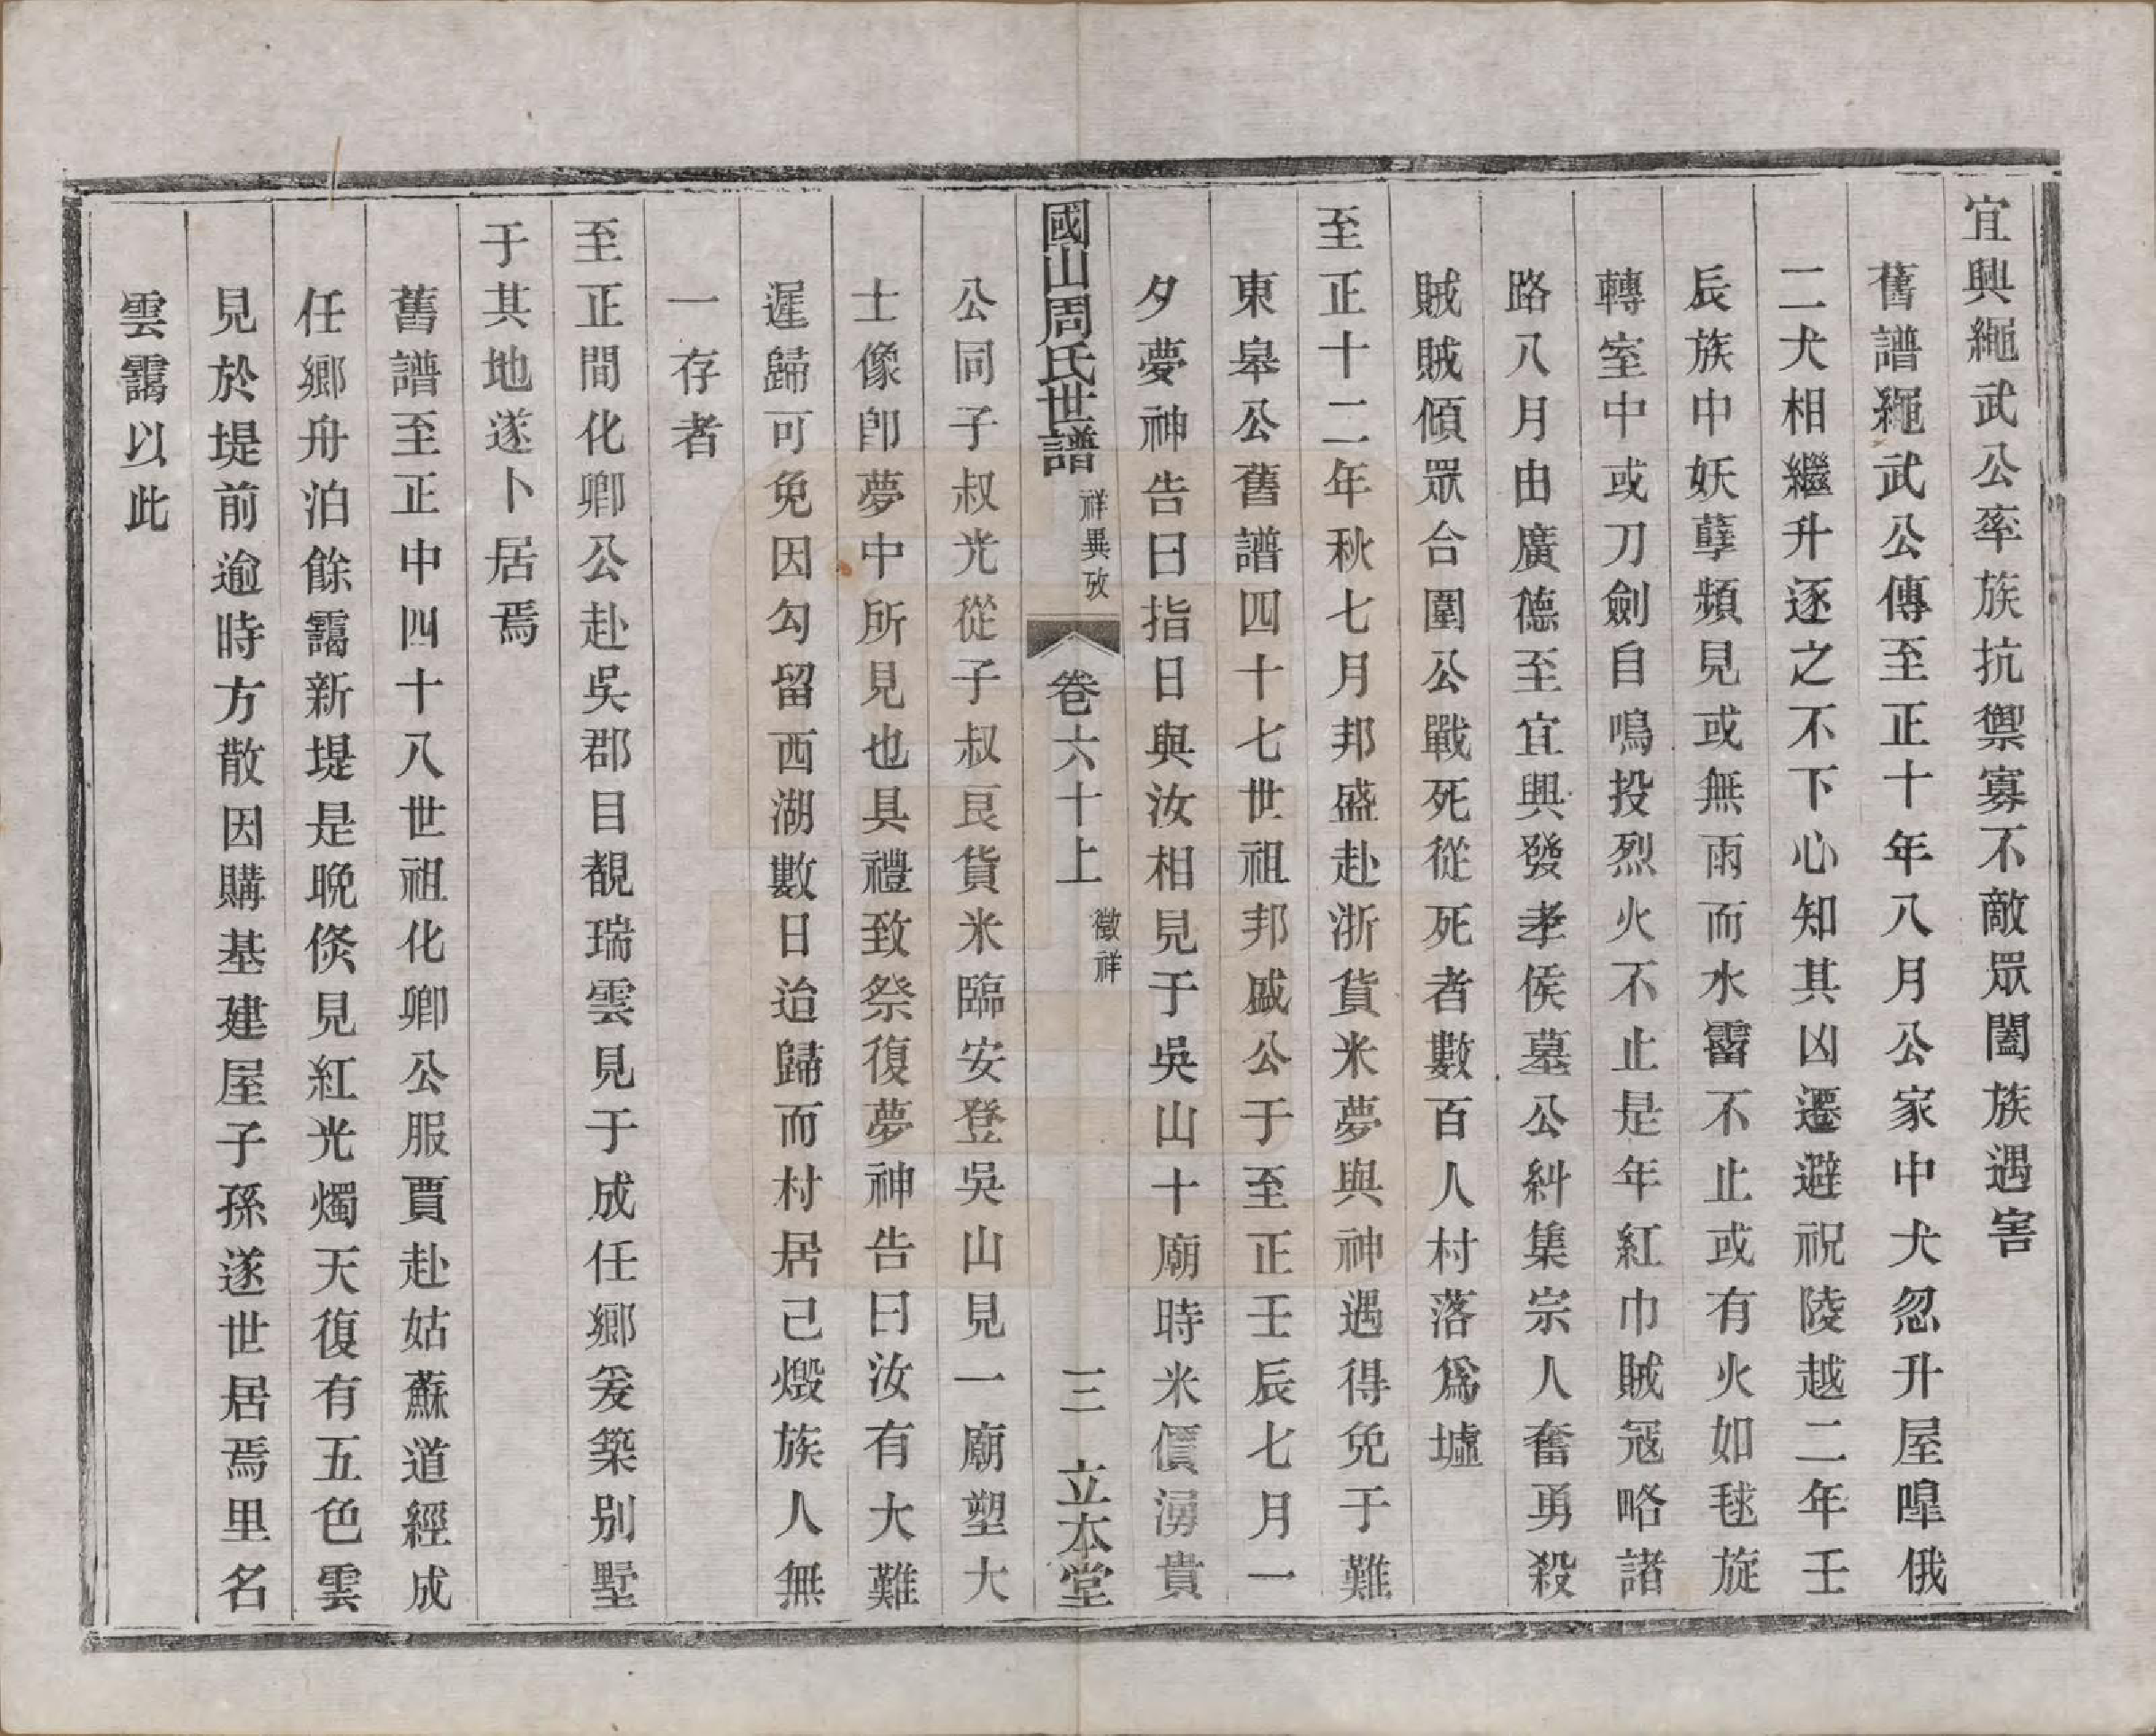 宜興繩武公率族抗禦寡不敵眾闔族遇害
舊譜繩武公傳至正十年八月公家中犬忽升屋嘷俄
二犬相繼升逐之不下心知其凶遷避祝陵越二年壬
辰族中妖孽頻見或無雨而水霤不止或有火如毬旋
轉室中或刀劍自鳴投烈火不止是年紅巾賊寇略諸
路八月由廣德至宜興發孝侯墓公糾集宗人奮勇殺
賊賊傾眾合圍公戰死從死者數百人村落爲墟
至正十二年秋七月邦盛赴浙貨米夢與神遇得免于難
東皋公舊譜四十七世祖邦盛公于至正壬辰七月一
夕夢神告曰指日與汝相見于吳山十廟時米價湧貴
國山周氏世譜 祥異攷 卷六十上 徵祥 三 立本堂
公同子叔光從子叔艮貨米臨安登吳山見一廟塑大
士像卽夢中所見也具禮致祭復夢神告曰汝有大難
遲歸可免因勾留西湖數日迨歸而村居已燬族人無
一存者
至正間化卿公赴吳郡目覩瑞雲見于成任鄉爰築別墅
于其地遂卜居焉
舊譜至正中四十八世祖化卿公服賈赴姑蘇道經成
任鄉舟泊餘靄新堤是晚倐見紅光燭天復有五色雲
見於堤前逾時方散因購基建屋子孫遂世居焉里名
雲靄以此